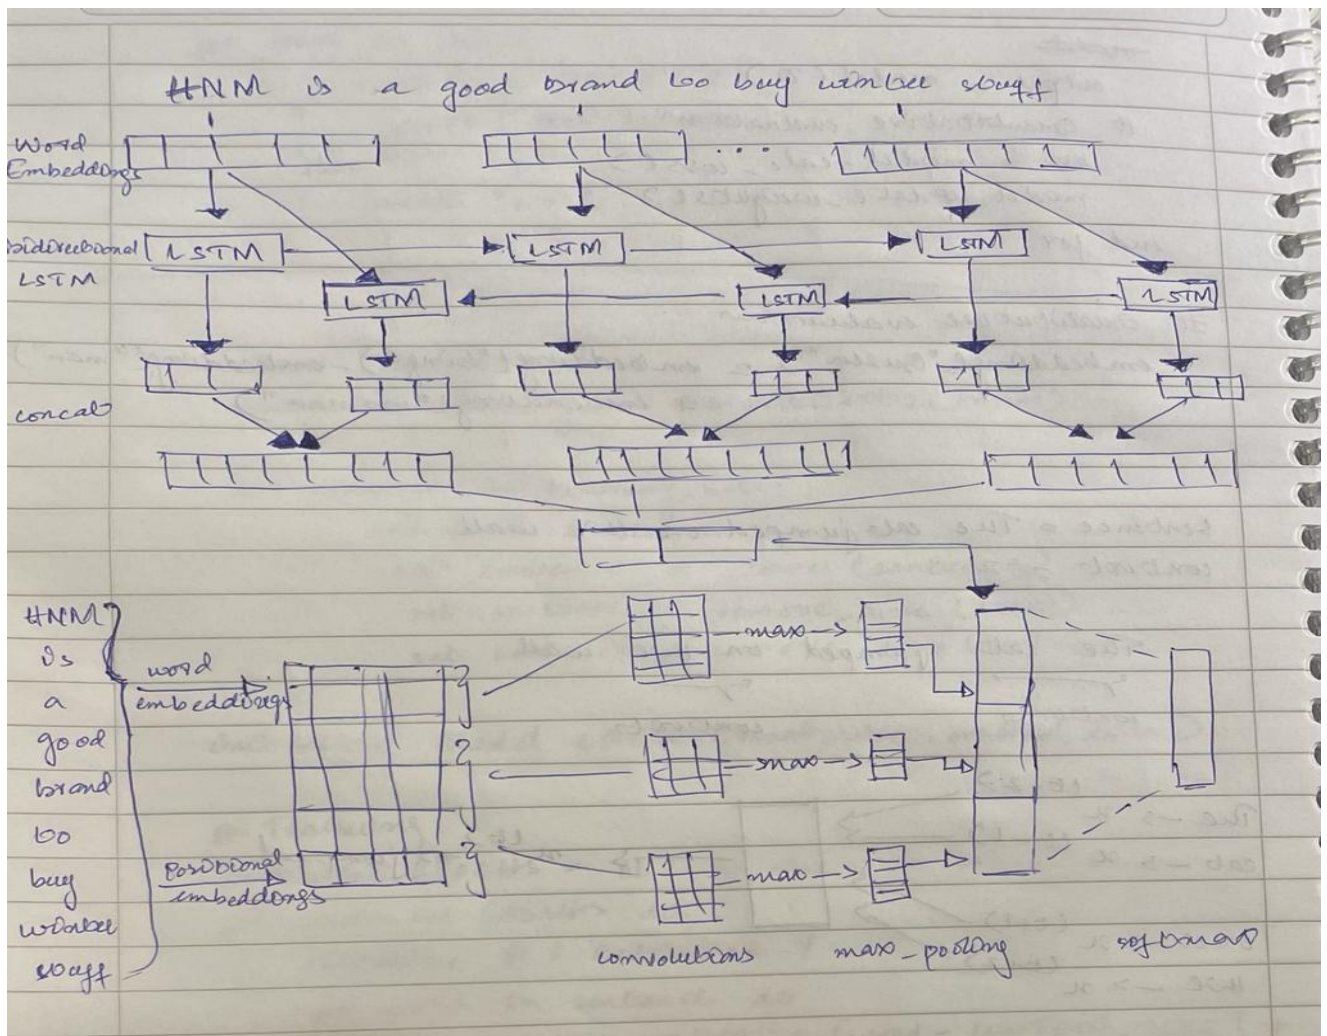 HNM is a good brand to buy winter stuff
Word
Embeddings
bidirectional
LSTM
LSTM LSTM LSTM
LSTM LSTM LSTM
concat
HNM
is
a
good
brand
to
buy
winter
stuff
word
embeddings
Positional
embeddings
max
max
max
convolutions
max_pooling
softmax